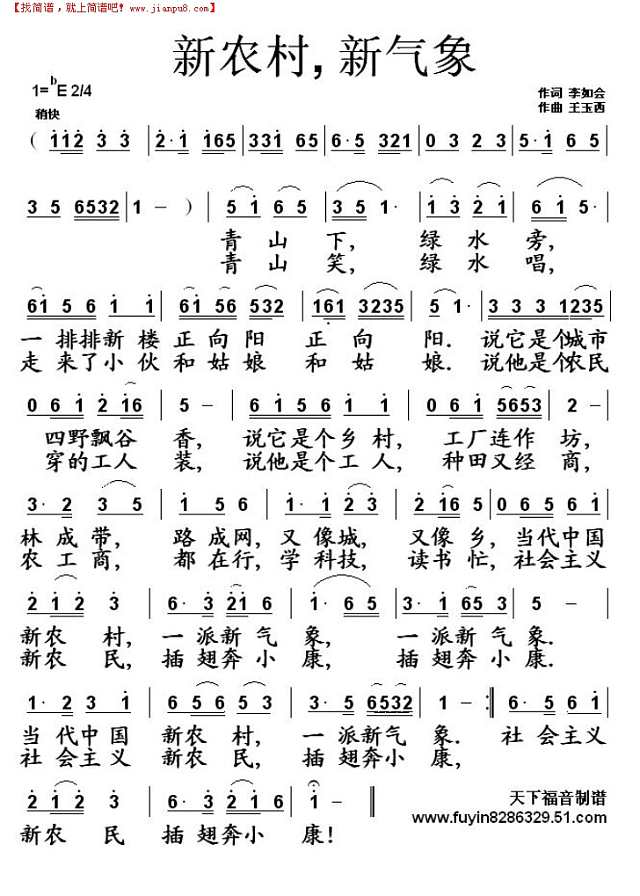 【找简谱，就上简谱吧! www.jianpu8.com】
新农村, 新气象
1= bE 2/4
作词 李如会
稍快
作曲 王玉西
( 112 3 3 | 2· 1 165 | 331 65 | 6· 5 321 | 0 3 2 3 | 5· 1 6 5
3 5 6532 | 1 – ) | 5 1 6 5 | 3 5 1· | 1 3 2 1 | 6 1 5·
青 山 下, 绿 水 旁,
青 山 笑, 绿 水 唱,
61 5 6 1 1 | 61 56 532 | 161 3235 | 6· 5 | 3 3 3 1235
一 排排新 楼 正 向 阳 正 向 阳. 说它是个城市
走 来了小 伙 和 姑 娘 和 姑 娘. 说他是个农民
0 6 1 2 16 | 5 – | 6 1 5 6 1 1 | 0 6 1 5653 | 2 –
四野飘谷 香, 说它是个乡 村, 工厂连作 坊,
穿的工人 装, 说他是个工 人, 种田又经 商,
3· 2 3 5 | 1 5 6 | 1 2 3 | 2 16 5 | 0 6 5 6 1
林 成 带, 路 成网, 又 像城, 又像 乡, 当代中国
农 工 商, 都 在行, 学 科技, 读书 忙, 社会主义
2 1 2 3 | 6· 3 21 6 | 1· 6 5 | 3· 1 65 3 | 5 –
新农 村, 一 派新 气 象, 一 派新 气 象.
新农 民, 插 翅奔 小 康, 插 翅奔 小 康.
1· 2 3 2 | 6 5 6 5 3 | 3· 5 6532 | 1 – :| 6· 5 6 1
当 代中 国 新农 村, 一 派新气 象. 社 会主义
社 会主 义 新农 民, 插 翅奔小 康,
2 1 2 3 | 6· 5 2 1 6 | 1 – ‖
天下福音制谱
www.fuyin8286329.51.com
新农 民 插 翅奔小 康!